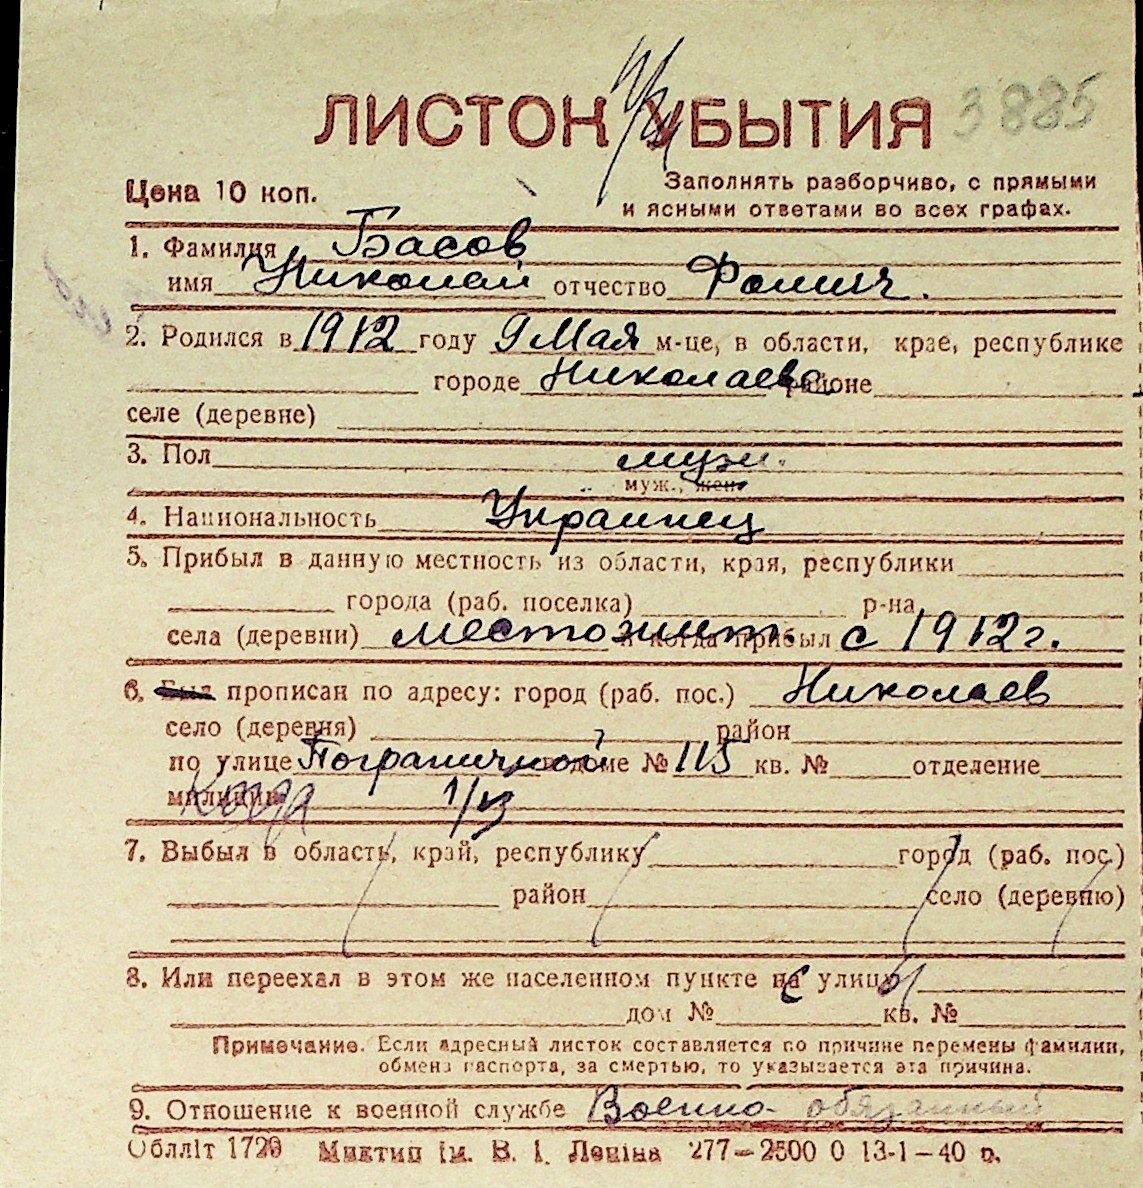 ЛИСТОК УБЫТИЯ 3885
Цена 10 коп.
Заполнять разборчиво, с прямыми
и ясными ответами во всех графах.
1. Фамилия Басов
имя Николай отчество Фомич.
2. Родился в 1912 году 9 Мая м-це, в области, крае, республике
городе Николаеве районе
селе (деревне)
3. Пол муж.
муж., жен.
4. Национальность Украинец
5. Прибыл в данную местность из области, края, республики
города (раб. поселка) р-на
села (деревни) местожит. и когда прибыл с 1912 г.
6. Был прописан по адресу: город (раб. пос.) Николаев
село (деревня) район
по улице Пограничной в доме № 115 кв. № отделение
милиции Когда
7. Выбыл в область, край, республику город (раб. пос.)
район село (деревню)
8. Или переехал в этом же населенном пункте на с улицы
дом № кв. №
Примечание. Если адресный листок составляется по причине перемены фамилии,
обмена паспорта, за смертью, то указывается эта причина.
9. Отношение к военной службе Военно-обязанный
Облліт 1729 Миктип ім. В. І. Леніна 277—2500 0 13-1-40 р.